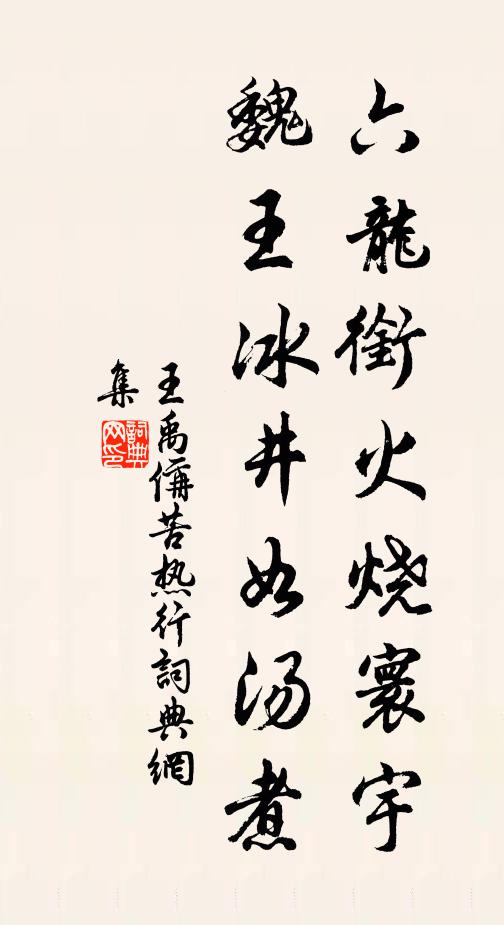 六龍銜火烧寰宇
魏王冰井如汤煮
王禹偁苦热行詞典網
集
詞典网印